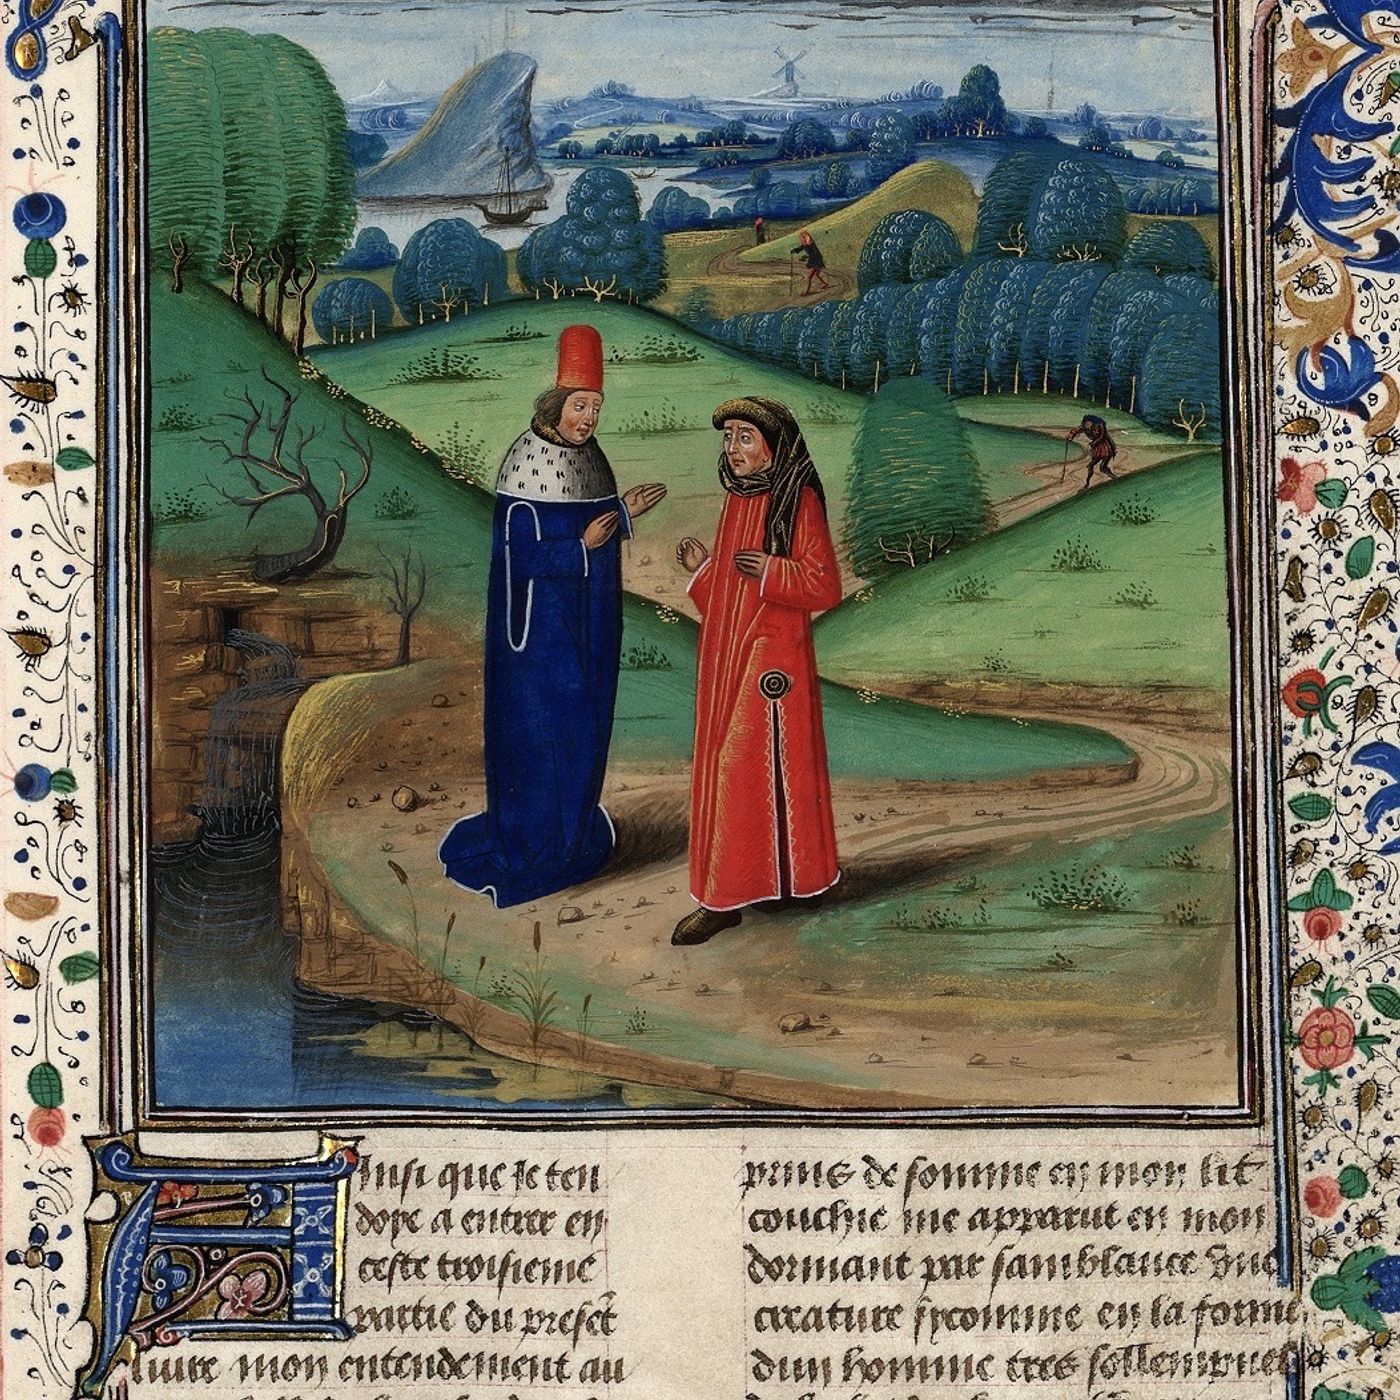 Ainsi que je ten
doye a entrer en
ceste troisieme
partie du preset
liure mon entendement au
prins de somme en mon lit
couchie me apparut en mon
dormant par samblance vne
creature sycomme en la forme
dun homme tres sollempnel